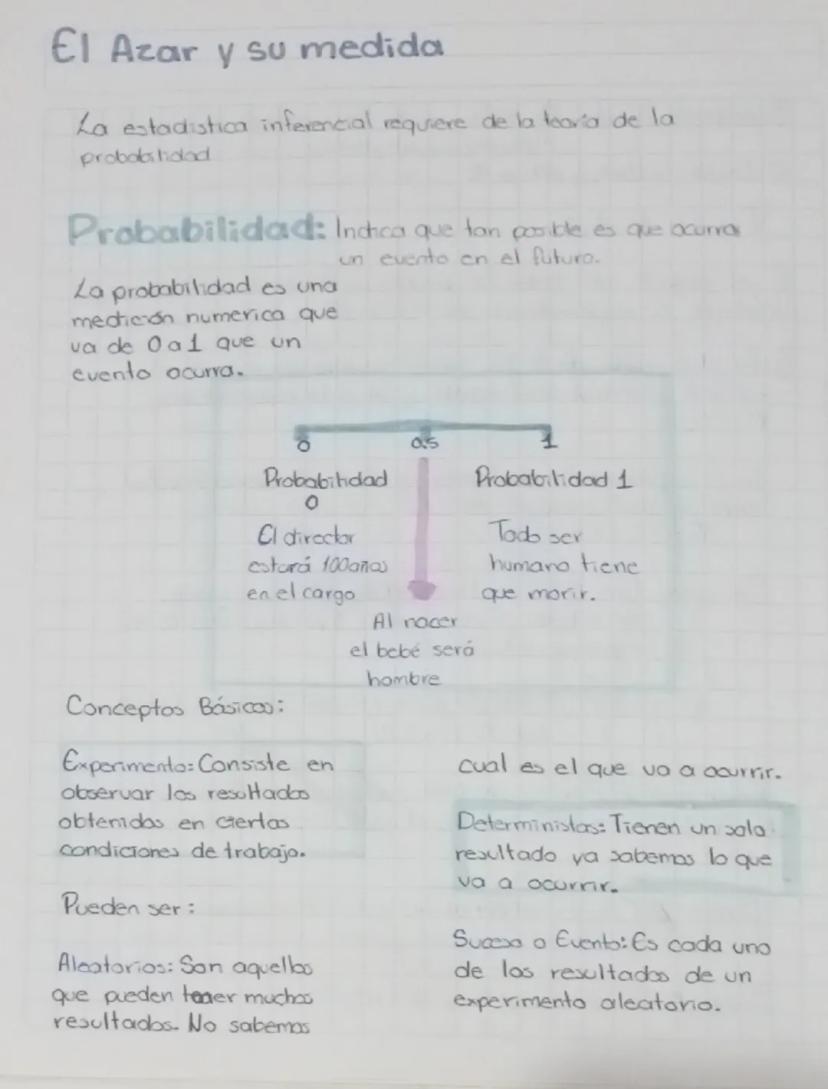 El Azar y su medida
La estadistica inferencial requiere de la teoría de la
probabilidad
Probabilidad: Indica que tan posible es que ocurra
un evento en el futuro.
La probabilidad es una
medición numerica que
va de 0 a 1 que un
evento ocurra.
0 0.5 1
Probabilidad
0
El director
estará 100 años
en el cargo
Probabilidad 1
Todo ser
humano tiene
que morir.
Al nacer
el bebé será
hombre
Conceptos Básicos:
Experimento: Consiste en
observar los resultados
obtenidos en ciertas
condiciones de trabajo.
Pueden ser:
Aleatorios: Son aquellos
que pueden tener muchos
resultados. No sabemos
cual es el que va a ocurrir.
Deterministas: Tienen un solo
resultado ya sabemos lo que
va a ocurrir.
Suceso o Evento: Es cada uno
de los resultados de un
experimento aleatorio.